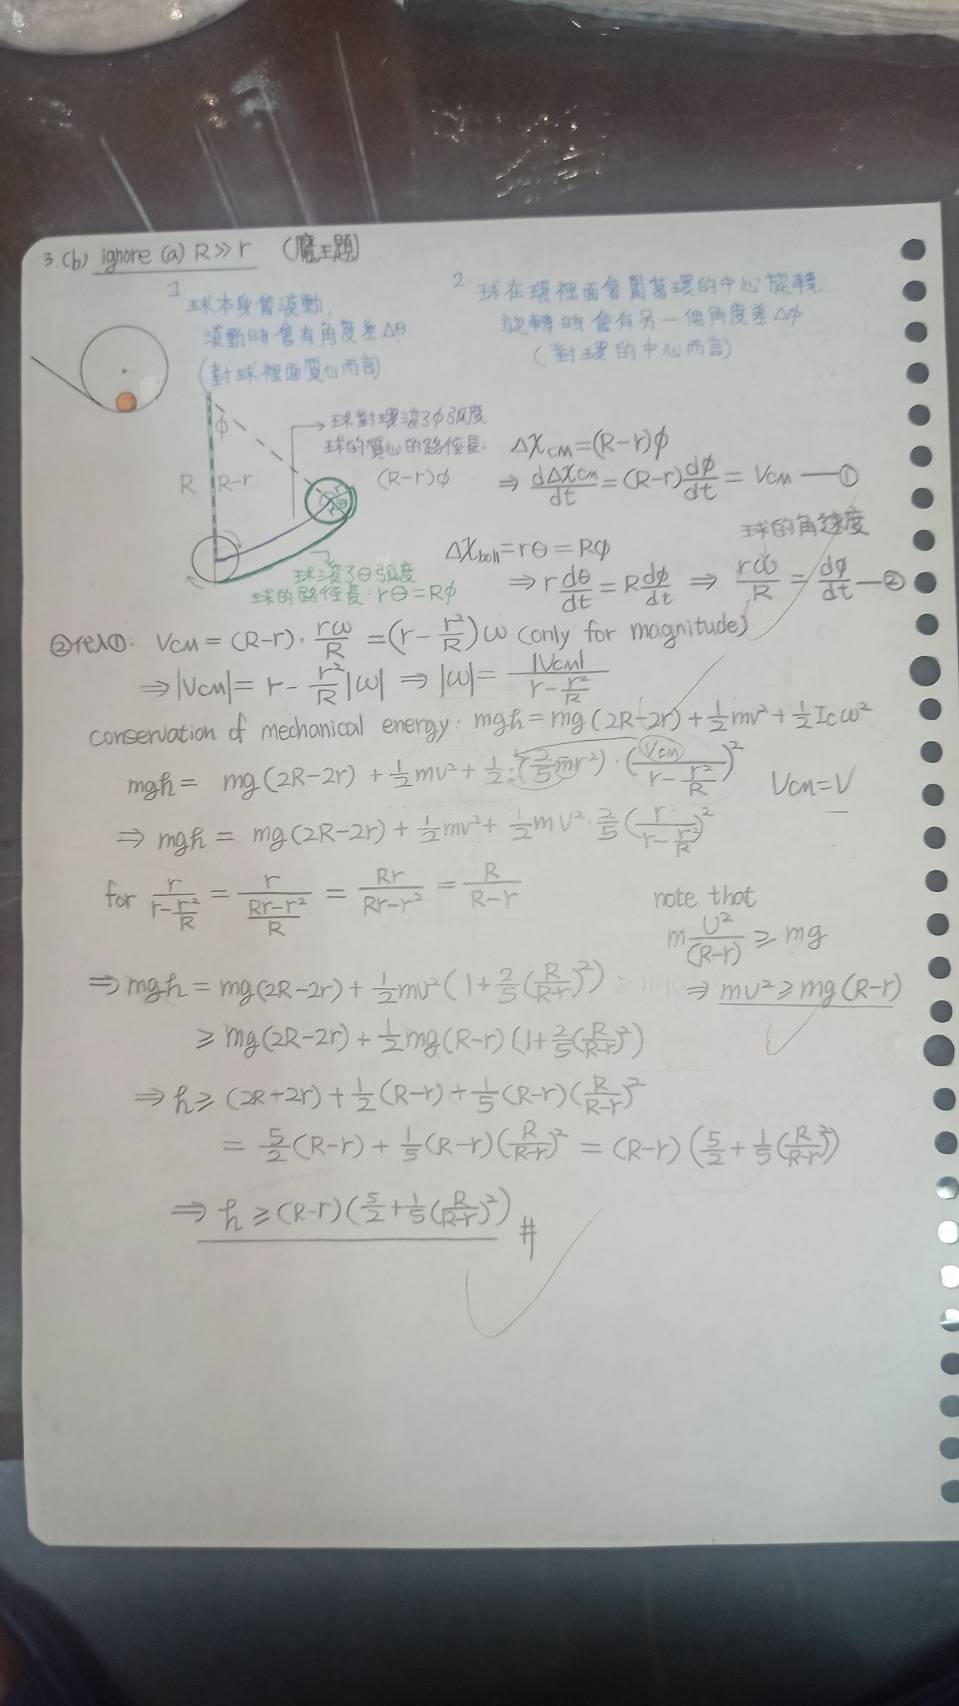 3.(b) ignore (a) R≫r (魔王題)
1. 球本身會滾動,
滾動時會有角度差Δθ
(對球裡面質心而言)
2. 球在環裡面會圍著環的中心旋轉
旋轉時會有另一個角度差Δφ
(對環的中心而言)
φ
R R-r
r
θ
→球對環滾了φ弧度
球的質心的路徑長:
(R-r)φ
球滾了θ弧度
球的路徑長: rθ=Rφ
Δx_CM=(R-r)φ
⇒ dΔx_CM/dt=(R-r)dφ/dt= V_CM —①
Δx_ball=rθ=Rφ
⇒ r dθ/dt=R dφ/dt ⇒ rω/R = dφ/dt —②
球的角速度
②代入①: V_CM=(R-r)·rω/R=(r-r²/R)ω (only for magnitude)
⇒|V_CM|= r-r²/R|ω| ⇒ |ω|= |V_CM|/(r-r²/R)
conservation of mechanical energy: mgh=mg(2R-2r)+½mv²+½Icω²
mgh= mg(2R-2r)+½mv²+½·(⅖mr²)·(V_CM/(r-r²/R))²
V_CM=V
⇒ mgh= mg(2R-2r)+½mv²+½mv²·⅖(r/(r-r²/R))²
for r/(r-r²/R) = r/((Rr-r²)/R) = Rr/(Rr-r²) = R/(R-r)
note that
m v²/(R-r) ≥ mg
⇒ mv²≥mg(R-r)
⇒ mgh = mg(2R-2r)+½mv²(1+⅖(R/(R-r))²)
≥ mg(2R-2r)+½mg(R-r)(1+⅖(R/(R-r))²)
⇒ h≥ (2R+2r)+½(R-r)+⅕(R-r)(R/(R-r))²
= 5/2(R-r)+⅕(R-r)(R/(R-r))² = (R-r)(5/2+⅕(R/(R-r))²)
⇒ h ≥(R-r)(5/2+⅕(R/(R-r))²) #